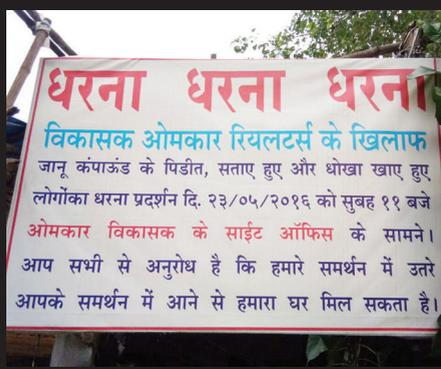 धरना धरना धरना
विकासक ओमकार रियलटर्स के खिलाफ
जानू कंपाऊंड के पिडीत, सताए हुए और धोखा खाए हुए
लोगोंका धरना प्रदर्शन दि. २३/०५/२०१६ को सुबह ११ बजे
ओमकार विकासक के साईट ऑफिस के सामने।
आप सभी से अनुरोध है कि हमारे समर्थन में उतरे
आपके समर्थन में आने से हमारा घर मिल सकता है।